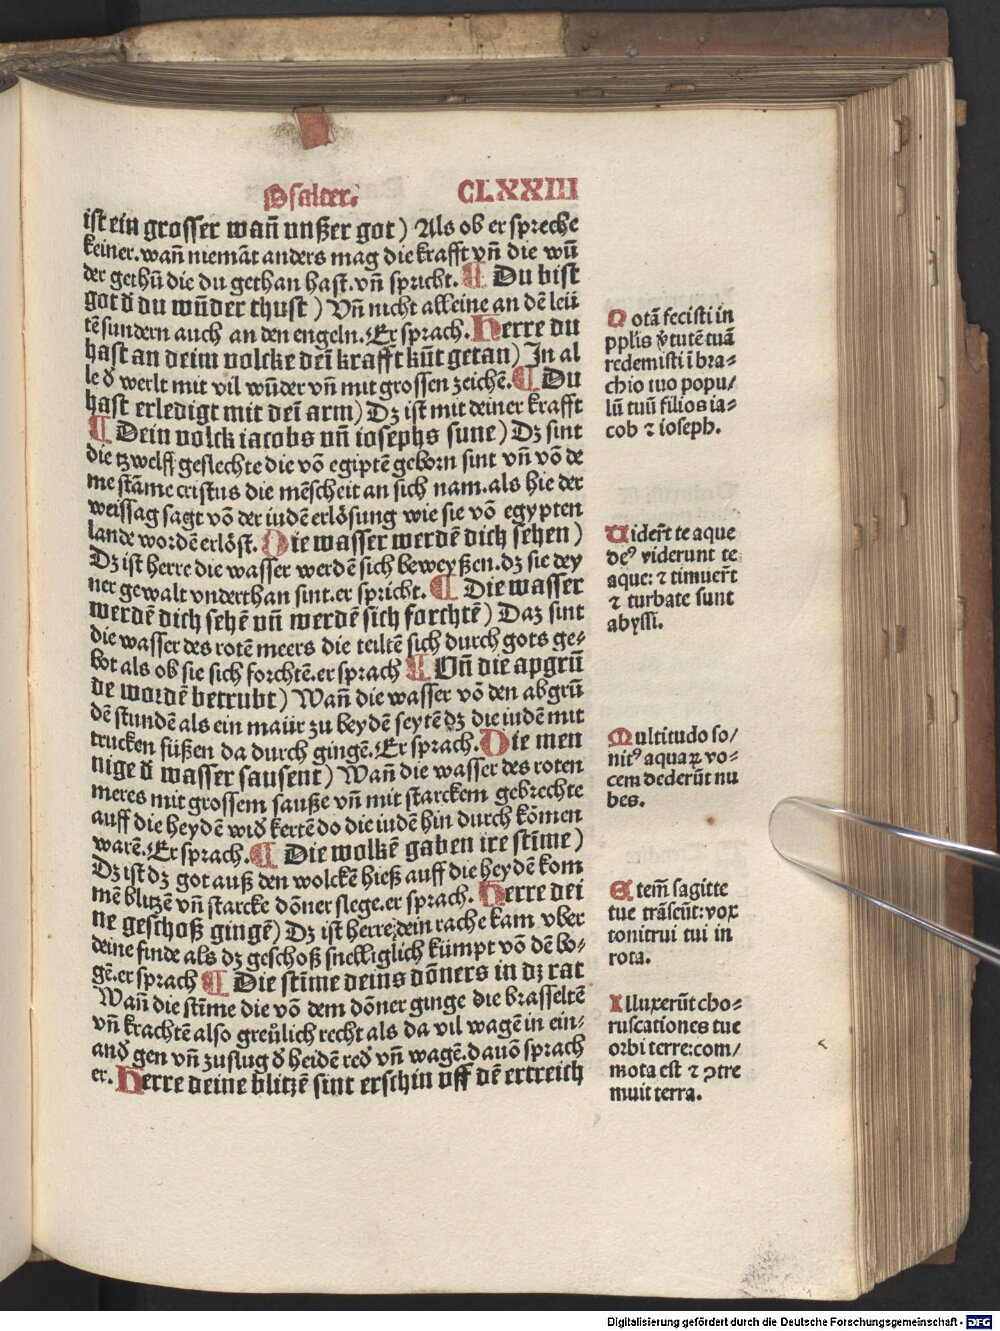 Psalter. CLXXIII
ist ein grosser wañ vnßer got) Als ob er spreche
keiner. wañ niemãt anders mag die krafft vñ die wũ
der gethũ die du gethan hast. vñ spricht. ¶ Du bist
got đ du wũder thust) Vñ nicht alleine an dẽ leũ
tẽ sundern auch an den engeln. Er sprach. Herre du
hast an deim volcke deĩ krafft kũt getan) In al
le đ werlt mit vil wũder vñ mit grossen zeichẽ. ¶ Du
hast erledigt mit deĩ arm) Dz ist mit deiner krafft
¶ Dein volck iacobs vñ iosephs sune) Dz sint
die tzwelff geslechte die võ egiptẽ geborn sint vñ võ de
me stãme cristus die mẽscheit an sich nam. als hie der
weissag sagt võ der iudẽ erlösung wie sie võ egypten
lande wordẽ erlöst. Die wasser werdẽ dich sehen)
Dz ist herre die wasser werdẽ sich beweyßen. dz sie dey
ner gewalt vnderthan sint. er spricht. ¶ Die wasser
werdẽ dich sehẽ vñ werdẽ sich forchtẽ) Daz sint
die wasser des rotẽ meers die teiltẽ sich durch gots ge⸗
bot als ob sie sich forchtẽ. er sprach ¶ Vñ die apgrũ
de wordẽ betrubt) Wañ die wasser võ den abgrũ
dẽ stundẽ als ein maür zu beydẽ seytẽ dz die iudẽ mit
trucken füßen da durch gingẽ. Er sprach. Die men
nige đ wasser sausent) Wañ die wasser des roten
meres mit grossem sauße vñ mit starckem gebrechte
auff die heydẽ wiđ kertẽ do die iudẽ hin durch kõmen
warẽ. Er sprach. ¶ Die wolkẽ gaben ire stĩme)
Dz ist dz got auß den wolckẽ hieß auff die heydẽ kom
mẽ blitzẽ vñ starcke dõner slege. er sprach. Herre dei
ne geschoß gingẽ) Dz ist herre dein rache kam vber
deine finde als dz geschoß snelliglich kümpt võ dẽ bo⸗
gẽ. er sprach ¶ Die stĩme deins dõners in dz rat
Wañ die stĩme die võ dem dõner ginge die brasseltẽ
vñ krachtẽ also greülich recht als da vil wagẽ in ein⸗
anđ gen vñ zuflug đ heidẽ ređ vñ wagẽ. dauõ sprach
er. Herre deine blitzẽ sint erschin vff dẽ ertreich
Notã fecisti in
pplis v̾tutẽ tuã
redemisti ĩ bra⸗
chio tuo popu/
lũ tuũ filios ia⸗
cob ⁊ ioseph.
Uider̃t te aque
deꝰ viderunt te
aque: ⁊ timuer̃t
⁊ turbate sunt
abyssi.
Multitudo so/
nitꝰ aquaꝝ vo⸗
cem dederũt nu
bes.
Etem̃ sagitte
tue trãseũt: vox
tonitrui tui in
rota.
Illuxerũt cho⸗
ruscationes tue
orbi terre: com/
mota est ⁊ ↄtre
muit terra.
Digitalisierung gefördert durch die Deutsche Forschungsgemeinschaft - DFG